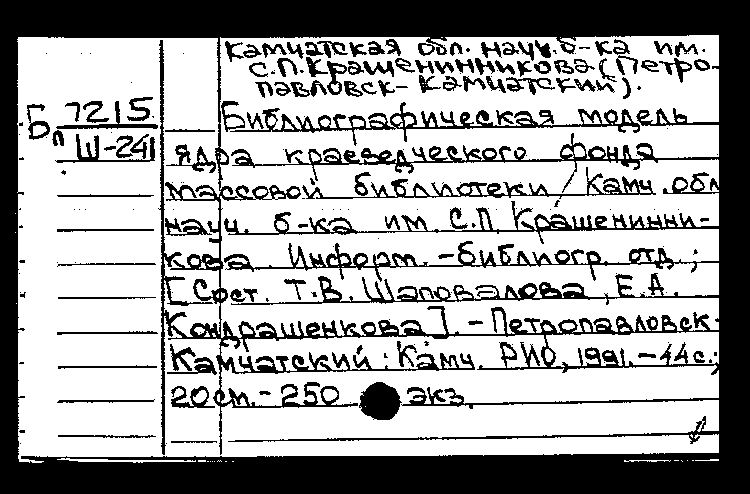 Камчатская обл. науч. б-ка им.
С.П. Крашенинникова (Петро-
павловск-Камчатский).
Бп 7215
Ш-241
Библиографическая модель
ядра краеведческого фонда
массовой библиотеки / Камч. обл
науч. б-ка им. С.П. Крашенинни-
кова Информ.-библиогр. отд.;
[Сост. Т.В. Шаповалова, Е.А.
Кондрашенкова]. - Петропавловск-
Камчатский: Камч. РИО, 1991. - 44 с.;
20 см. - 250 экз.